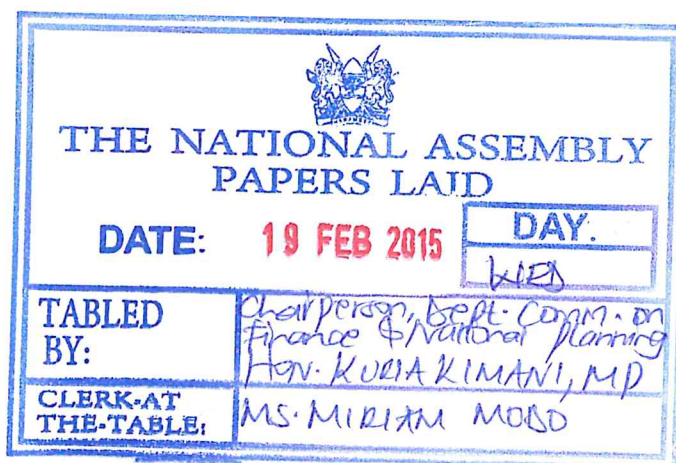 THE NATIONAL ASSEMBLY
PAPERS LAID
DATE: 19 FEB 2015
DAY.
WED
TABLED
BY:
Chairperson, Dept. Comm. on
Finance & National Planning
HON. KURIA KIMANI, MP
CLERK-AT
THE-TABLE:
MS. MIRIAM MODO